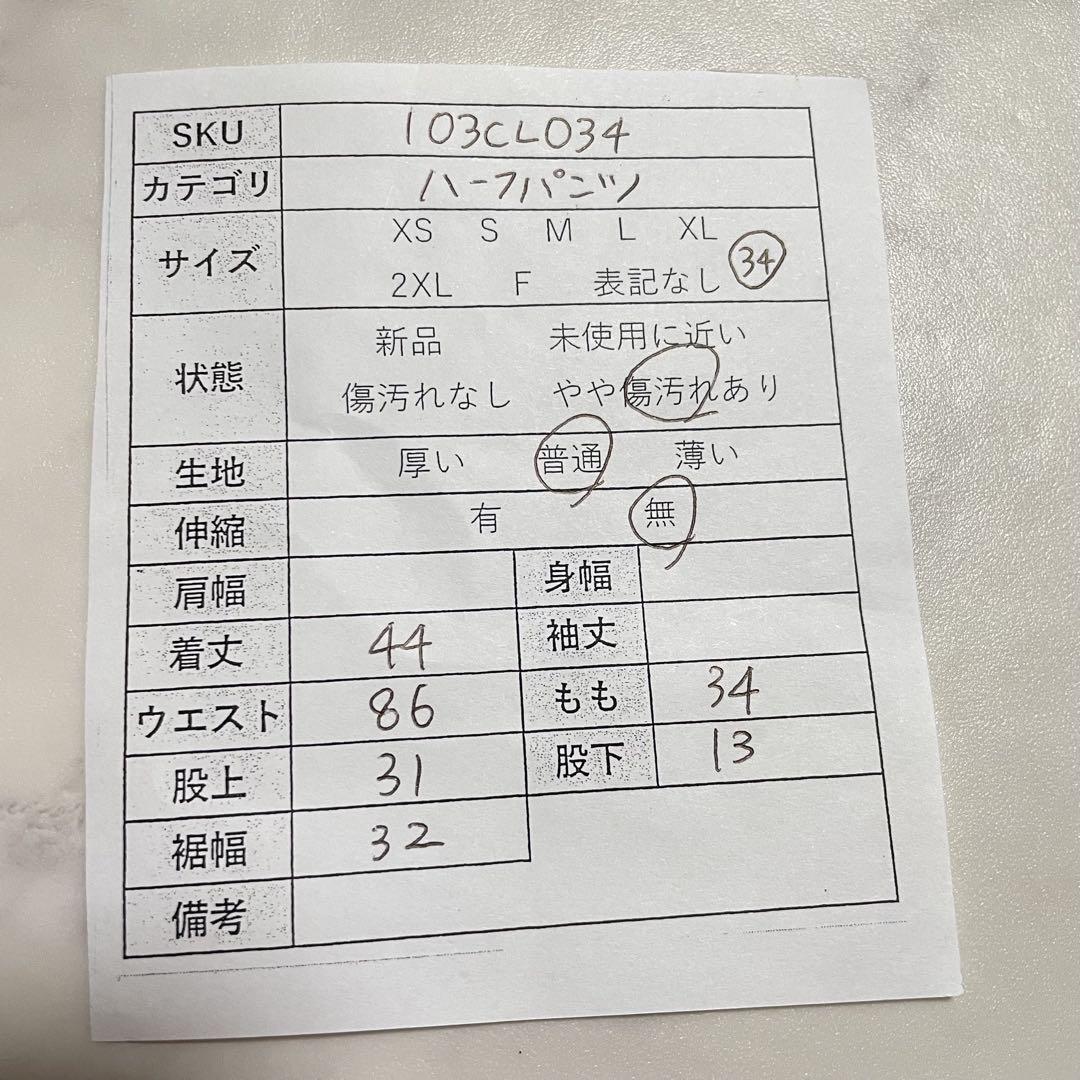 SKU 103CL034
カテゴリ ハーフパンツ
サイズ XS S M L XL
2XL F 表記なし 34
状態 新品 未使用に近い
傷汚れなし やや傷汚れあり
生地 厚い 普通 薄い
伸縮 有 無
肩幅 身幅
着丈 44 袖丈
ウエスト 86 もも 34
股上 31 股下 13
裾幅 32
備考